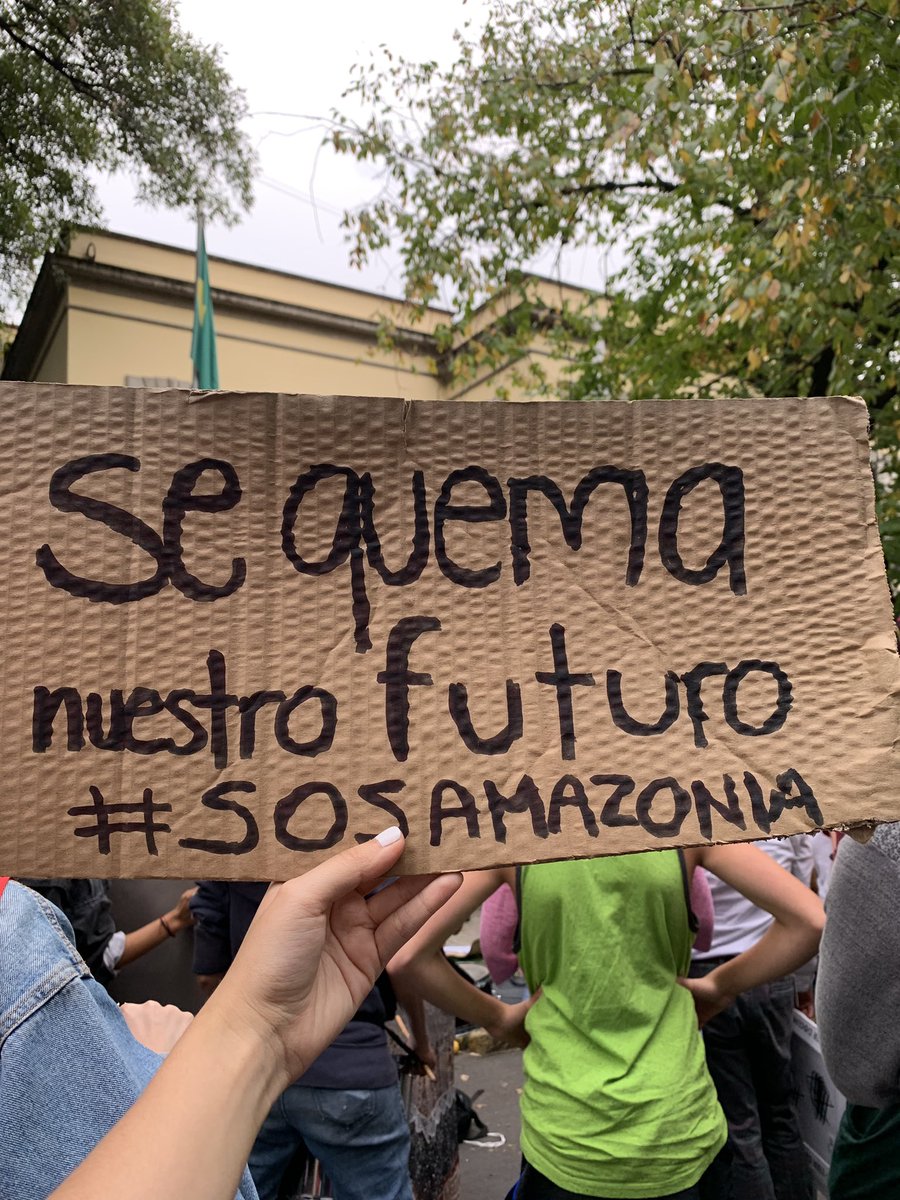 Se quema
nuestro futuro
#SOSAMAZONIA